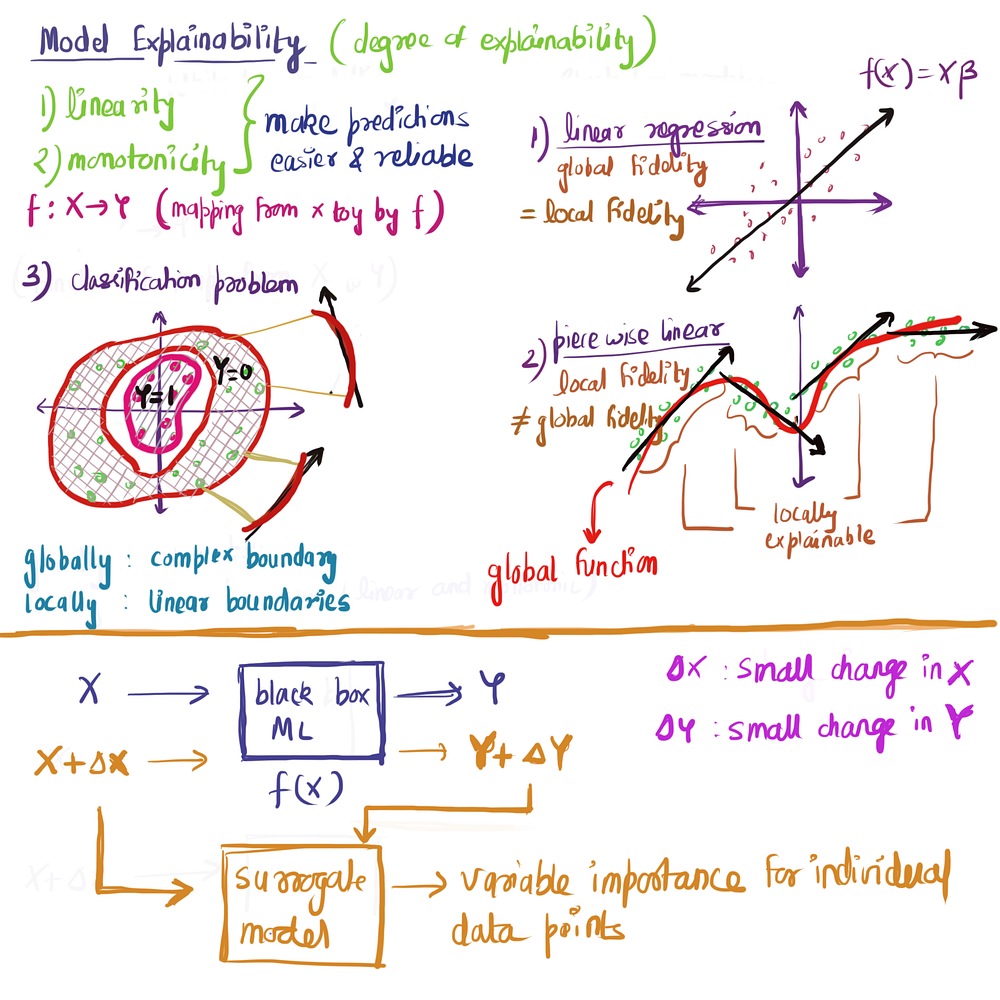 Model Explainability (degree of explainability)
1) linearity
2) monotonicity
make predictions
easier & reliable
f : X → Y (mapping from x to y by f)
f(x) = Xβ
1) linear regression
global fidelity
= local fidelity
3) classification problem
Y=0
Y=1
globally : complex boundary
locally : linear boundaries
2) piece wise linear
local fidelity
≠ global fidelity
locally
explainable
global function
X → black box ML → Y
X+ΔX → Y+ΔY
f(x)
ΔX : small change in X
ΔY : small change in Y
surrogate
model
→ variable importance for individual
data points